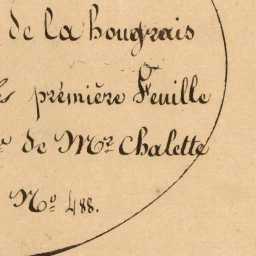 de la hougrais
première Feuille
de Mr. Chalette
No. 488.